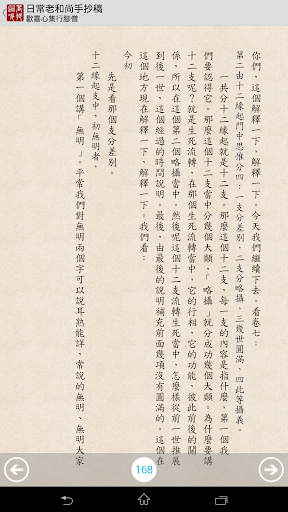 日常老和尚手抄稿
歡喜心集行腳僧
你們，這個解釋一下，解釋一下。今天我們繼續下去。看卷七：
第二由十二緣起門中思惟分四：一支分差別，二支分略攝，三幾世圓滿，四此等攝義。
一共分十二緣起就是十二支。那麼這個十二支，每一支的內容是指什麼，第一個我
們要認得它。那麼這個十二支當中分幾個大類，「略攝」就分成功幾個大類。為什麼要講
十二支呢？就是生死流轉，在生死流轉當中，它的行相，它的功能，彼此前後的關
係，所以在這個第二個略攝當中。然後呢這個十二支流轉生死當中，怎麼樣從前一世推展
到後一世，這個經過的時間說明。最後，由最後的說明補充前面幾項沒有圓滿的。這個在
這個地方現在解釋一下，解釋一下。我們看：
今初
先是看那個支分差別。
十二緣起支中，初無明者，
第一個講「無明」。平常我們對無明兩個字可以說耳熟能詳，常說的無明、無明大家
168